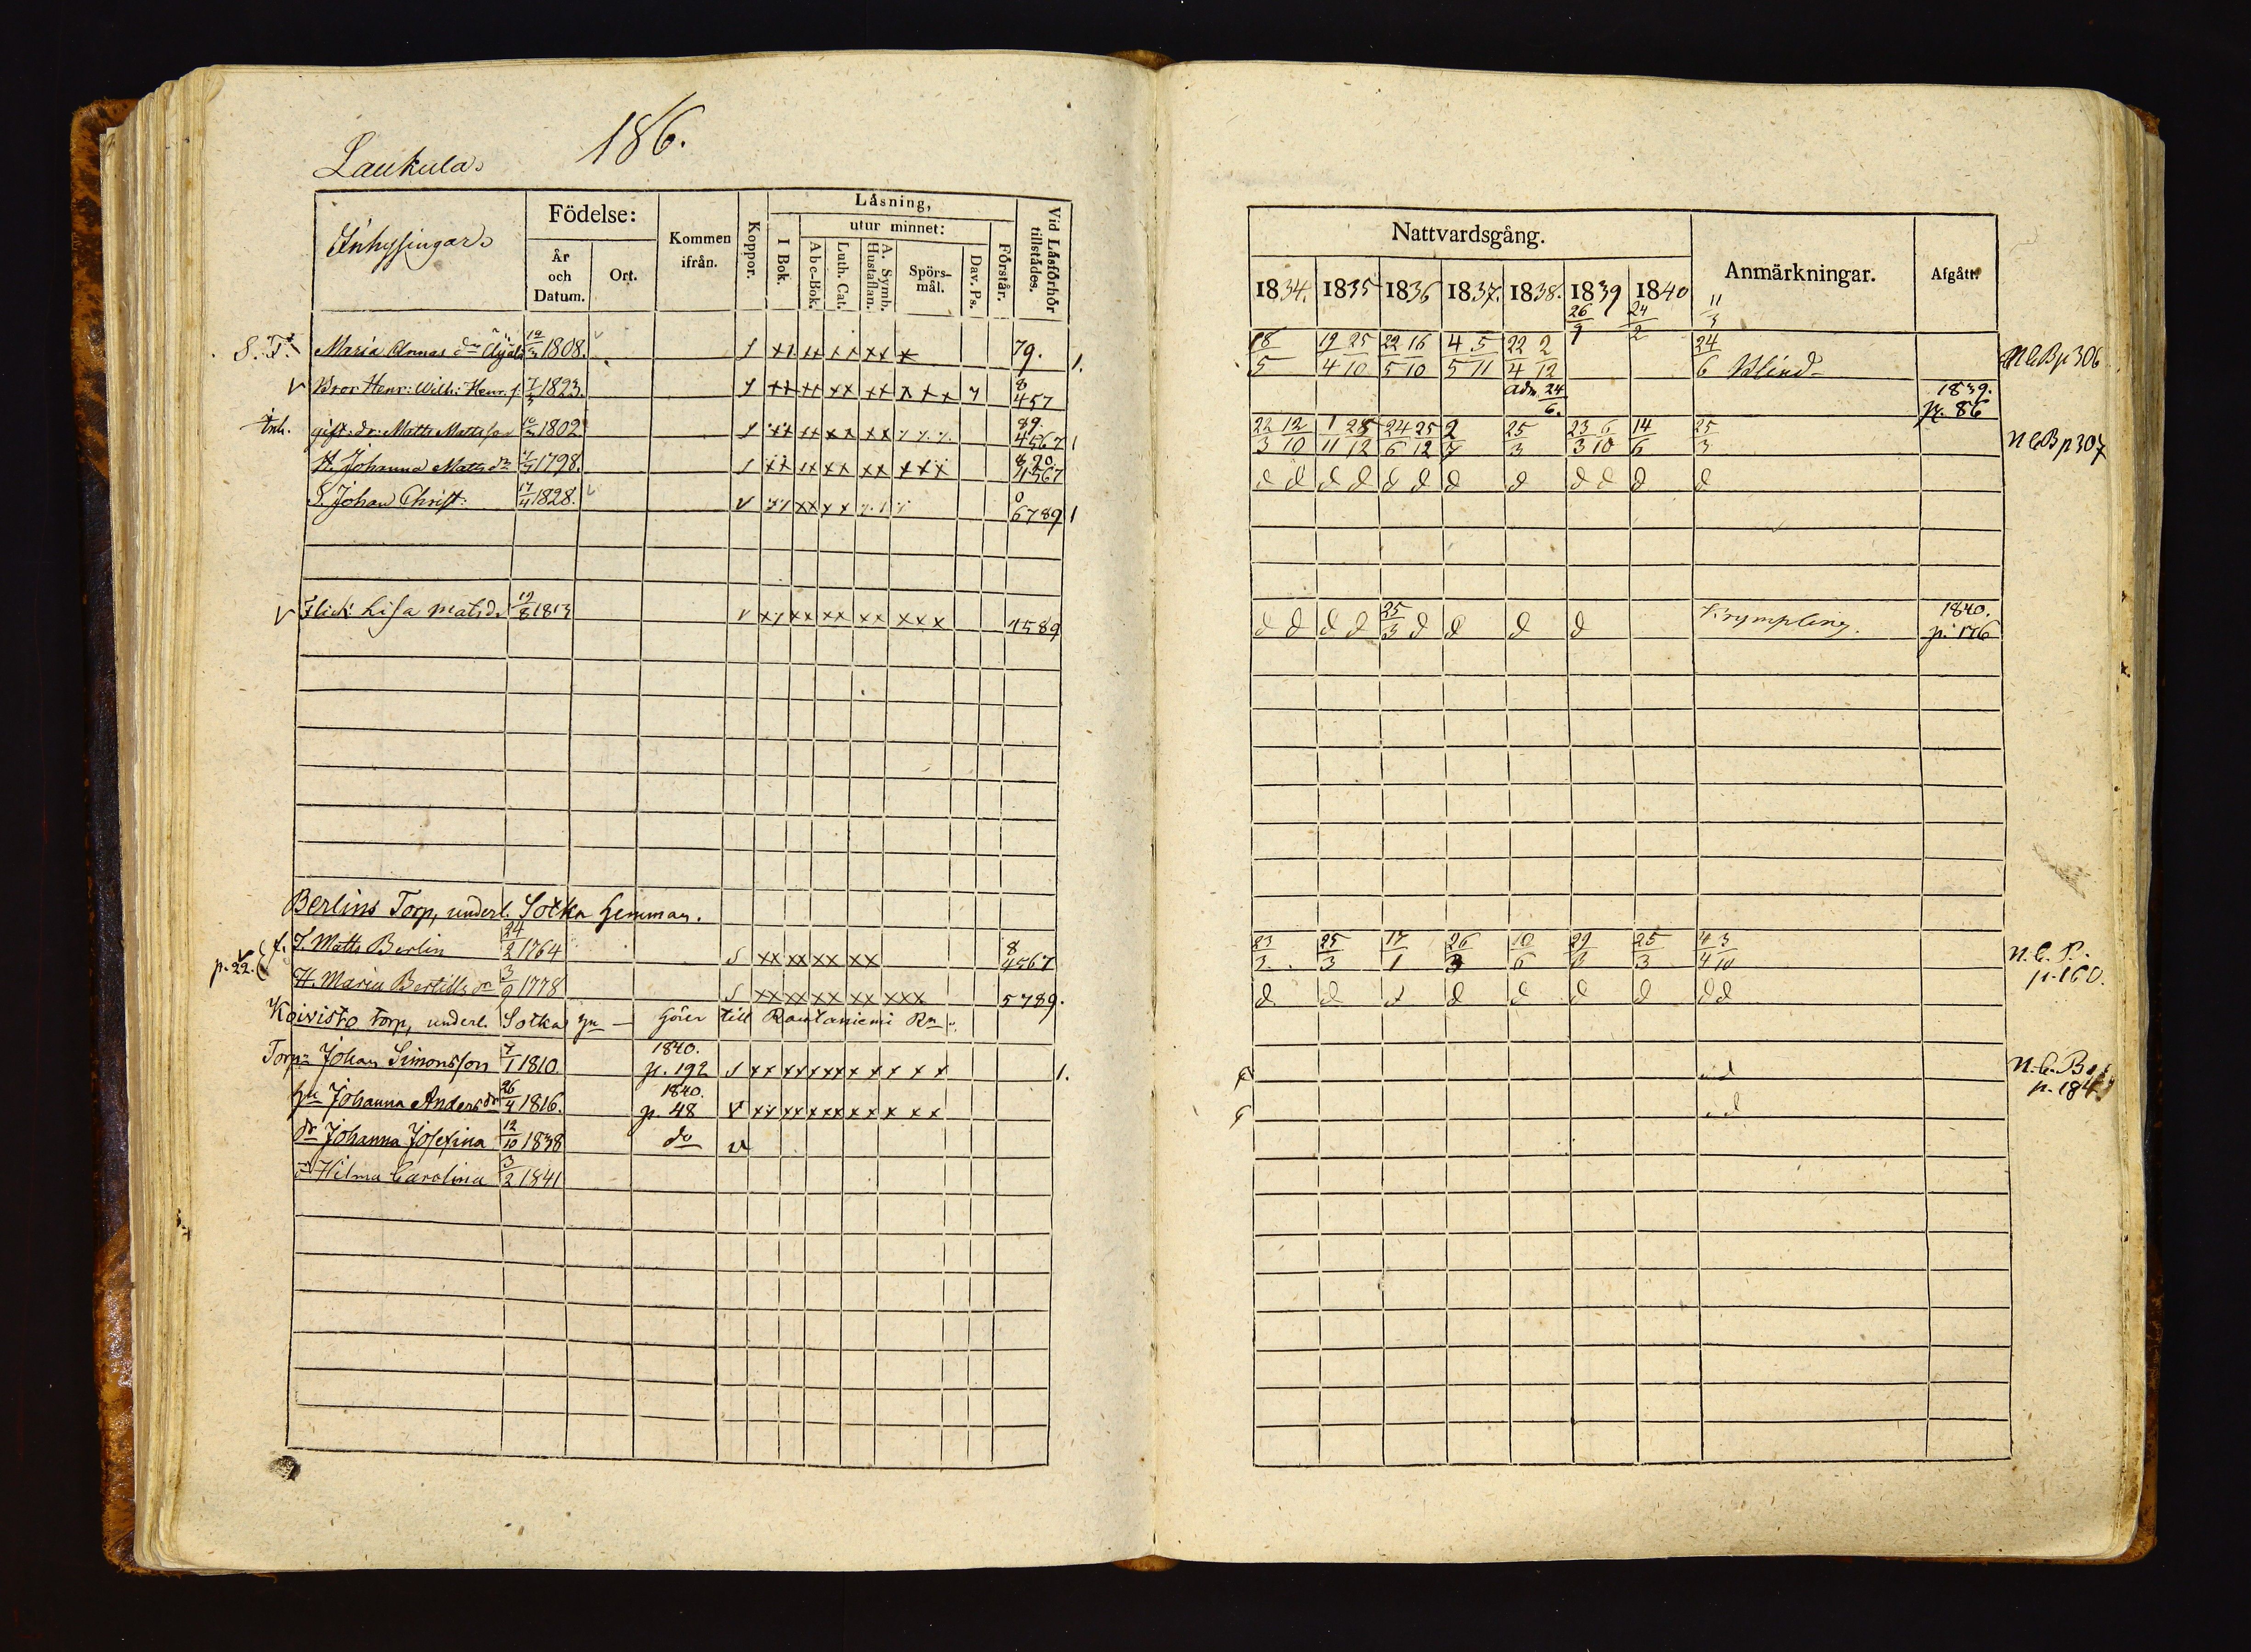 186.
Laukula.
Inhysingar.
Födelse:
År och Datum.
Ort.
Kommen ifrån.
Koppor.
Läsning,
I Bok.
utur minnet:
Abc-Bok.
Luth. Cat.
A. Symb. Hustaflan.
Spörs-mål.
Dav. Ps.
Förstår.
Vid Läsförhör tillstådes.
Nattvardsgång.
1834. 1835 1836 1837. 1838. 1839 1840
Anmärkningar.
Afgått.
Maria Annas dr 1808. 79. 1.
18/5 19/4 25/10 22/5 16/10 4/5 5/11 22/4 2/12 26/9 24/2 11/3 24/6 Blind N.C.B p 306
v Bror Henr: Wilh: Henr. s. 1823. 8 457
adm 24/6. 1839. p. 86
Inh. gift. dr: Matts Mattsson 1802 89. 4567 1
22/3 12/10 1/11 25/12 24/6 25/12 25/3 23/3 6/10 14/6 25/3 N.C.B p 307
H. Johanna Matts dr 1798. 4567
d d d d d d d d d d d d
S. Johan Christ: 17/4 1828. v 0 6789 1
v Flick: Lisa Matsd. 19/8 1813 v xx xx xx xx xxx 4589
d d d d 25/3 d d d d Krympling. 1840. p. 176
Berlins Torp, underl. Sotka Hemman.
p. 22. J. Matts Berlin 24/2 1764 s xx xx xx xx 8 4567
23/3. 25/3 17/1 26/3 10/6 25/3 4/4 3/10 N.C.B. p. 160.
H. Maria Bertills dr 3/9 1778 s xx xx xx xx xxx 5789.
d d d d d d d d d
Koivisto torp, underl. Sotka hn — hörer till Rautaniemi Rn.
Torpn Johan Simonsson 1810 1840. p. 192 1.
N.C.B. p. 184
hu Johanna Anders dr 26/4 1816. 1840. p. 48 v
dr Johanna Josefina 12/10 1838 do v
dr Hilma Carolina 3/2 1841